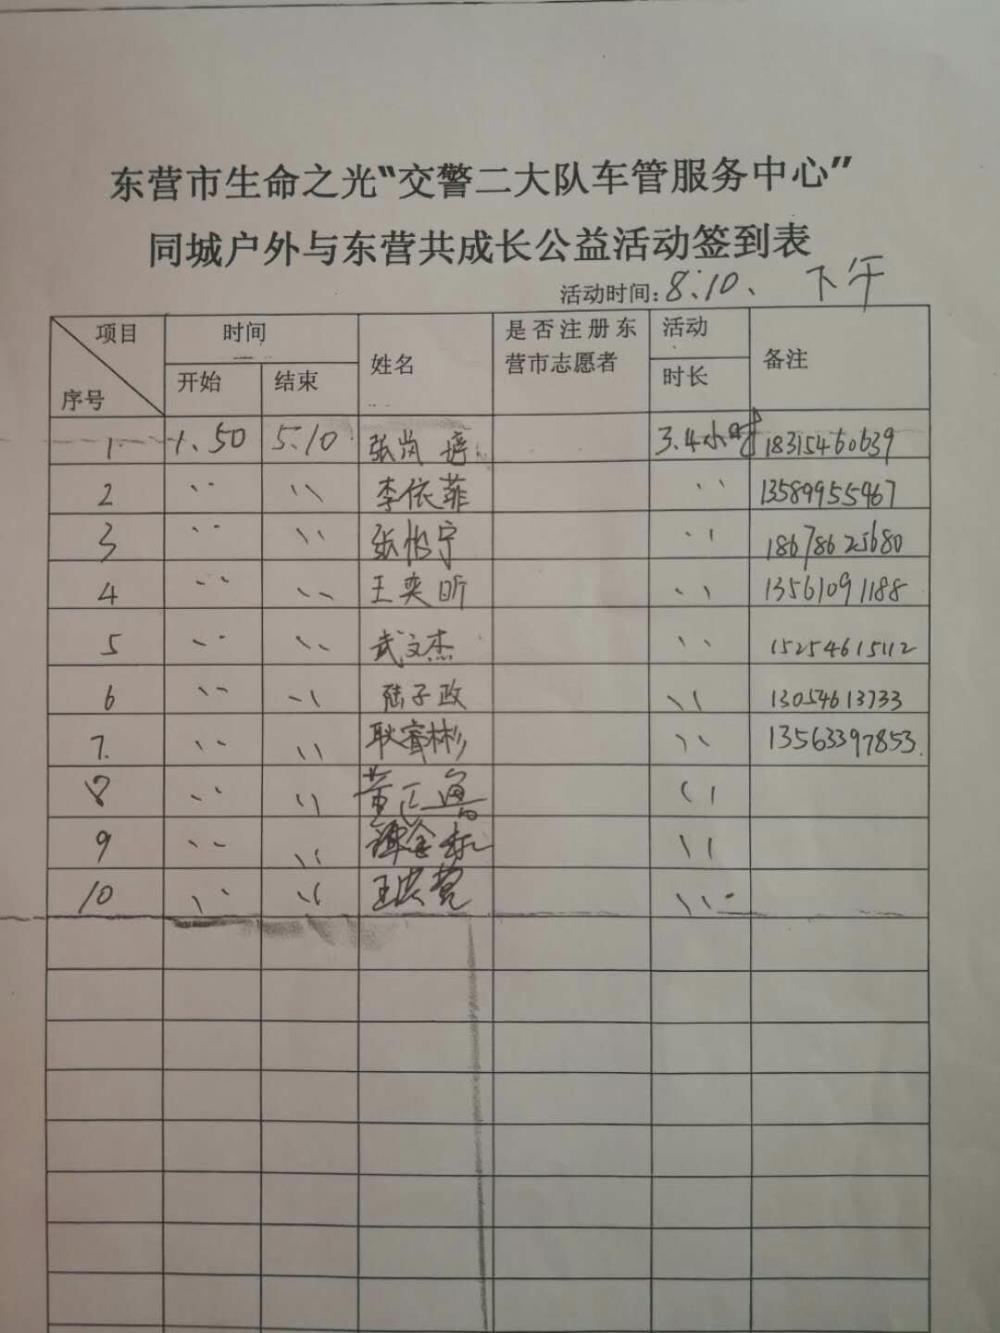 东营市生命之光“交警二大队车管服务中心”
同城户外与东营共成长公益活动签到表
活动时间:8.10、 下午
项目 时间 姓名 是否注册东营市志愿者 活动 备注
序号 开始 结束 时长
1 1.50 5.10 张岚婷 3.4小时 18315460639
2 〃 〃 李依菲 〃 13589955467
3 〃 〃 张怡宁 〃 18678625680
4 〃 〃 王奕昕 〃 13561091188
5 〃 〃 武文杰 〃 15254615112
6 〃 〃 陆子政 〃 13054613733
7. 〃 〃 耿睿彬 〃 13563397853.
8 〃 〃 董正 〃
9 〃 〃 〃
10 〃 〃 王洪 〃